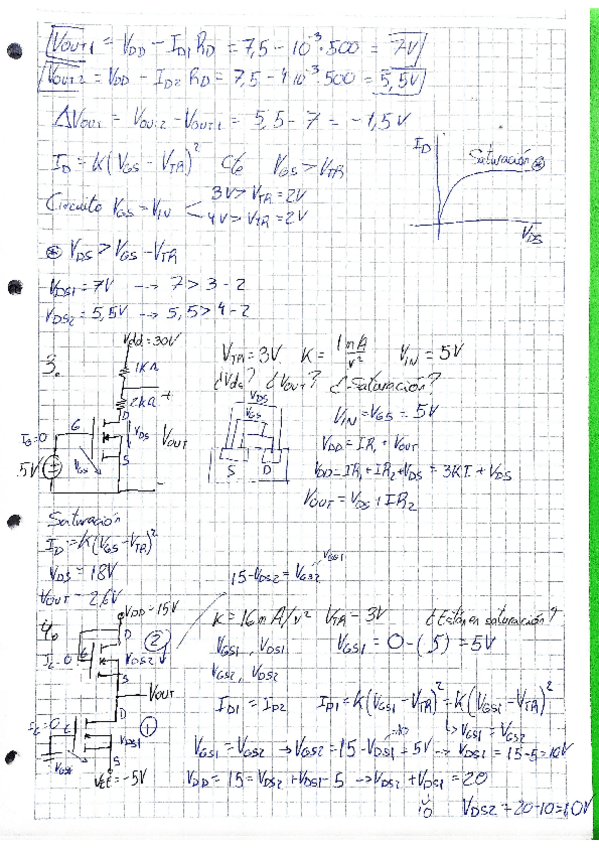 VOUT1 = VDD - ID1 RD = 7,5 - 10^-3 · 500 = 7V
VOUT2 = VDD - ID2 RD = 7,5 - 4·10^-3 · 500 = 5,5V
ΔVOUT = VOUT2 - VOUT1 = 5,5 - 7 = -1,5V
ID = K(VGS - VTR)^2 VGS > VTR
Circuito VGS = VIN
3V > VTR = 2V
4V > VTR = 2V
ID
Saturación ⊛
VDS
⊛ VDS > VGS - VTR
VDS1 = 7V → 7 > 3 - 2
VDS2 = 5,5V → 5,5 > 4 - 2
3.
Vdd = 30V
1KΩ
2KΩ +
D
IG=0
G
VDS
VOUT
5V
VGS
S
VTR = 3V K = 1mA/V² VIN = 5V
¿Vds? ¿VOUT? ¿Saturación?
VDS
VGS
S
D
VIN = VGS = 5V
VDD = IR1 + VOUT
VDD = IR1 + IR2 + VDS = 3KI + VDS
VOUT = VDS + IR2
Saturación
ID = K(VGS - VTR)^2
VDS = 18V
VOUT = 26V
15 - VDS2 = VGS2
VGS1
4.
VDD = 15V
D
②
IG=0
G
VDS2
S
VOUT
D
①
IG=0
G
VDS1
VGS1
S
VEE = -5V
K = 16mA/V² VTR = 3V ¿Están en saturación?
VGS1, VDS1
VGS1 = 0 - (-5) = 5V
VGS2, VDS2
ID1 = ID2 ID1 = K(VGS1 - VTR)^2 = K(VGS2 - VTR)^2
↳ VGS1 = VGS2
VGS1 = VGS2 → VGS2 = 15 - VDS1 = 5V → VDS1 = 15 - 5 = 10V
VDD = 15 = VDS2 + VDS1 - 5 → VDS2 + VDS1 = 20
VDS2 = 20 - 10 = 10V